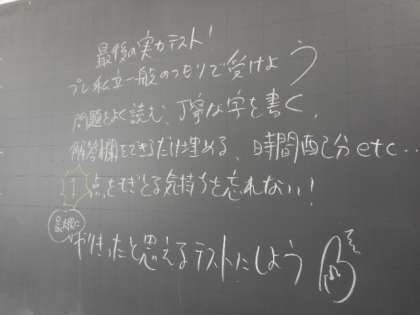 最後の実力テスト!
プレ私立一般のつもりで受けよう
問題をよく読む、丁寧な字を書く、
解答欄をできるだけ埋める、時間配分etc…
1点をもぎとる気持ちを忘れない!
最後に
やりきったと思えるテストにしよう